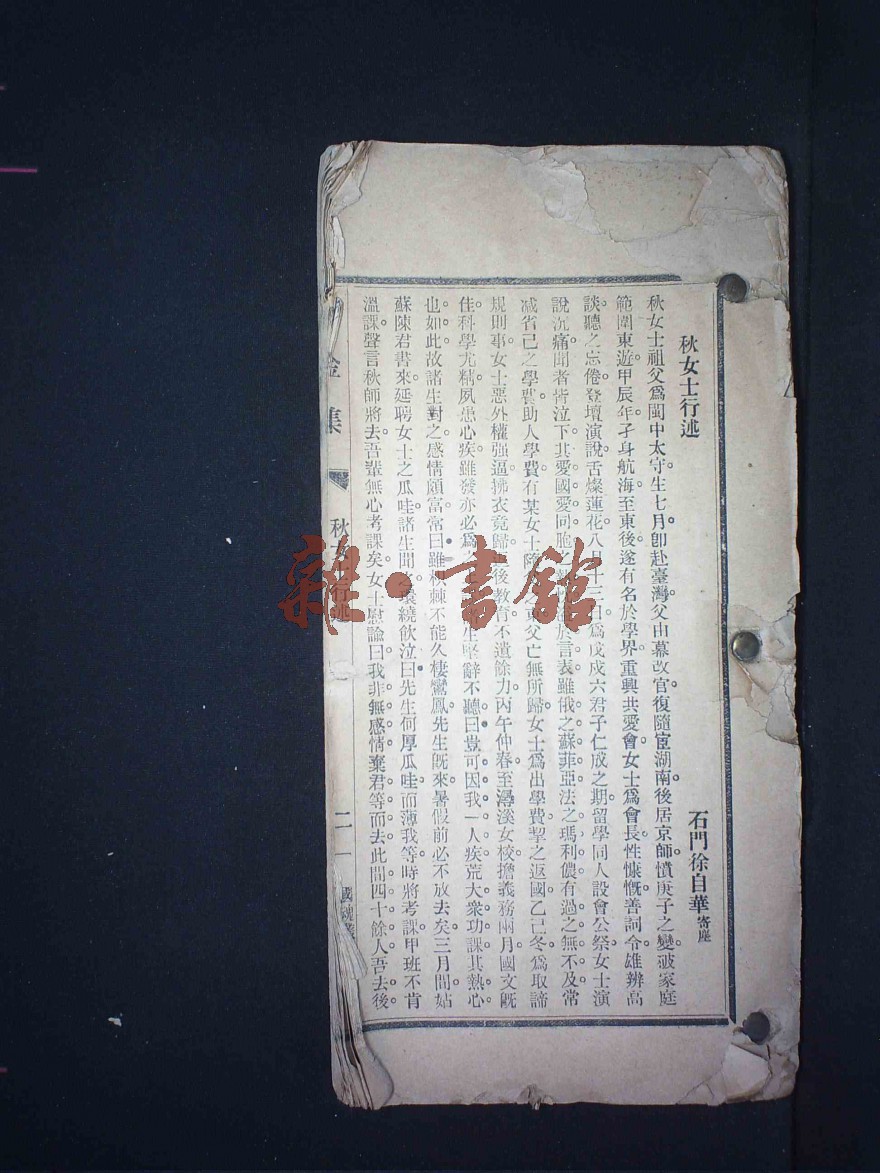 秋女士行述
石門徐自華寄塵
秋女士祖父爲閩中太守。生七月卽赴臺灣。父由幕改官。復隨宦湖南。後居京師。憤庚子之變。破家庭
範圍東遊。甲辰年。孑身航海至東後。遂有名於學界。重興共愛會。女士爲會長。性慷慨。善詞令。雄辨高
談。聽之忘倦。登壇演說。舌燦蓮花。八月十三日。爲戊戌六君子仁成之期。留學同人設會公祭。女士演
說沉痛。聞者皆泣下。其愛國愛同胞之 於言表。雖俄之蘇菲亞。法之瑪利儂。有過之無不及。常
減省己之學費。助人學費。有某女士 之東。父亡無所歸。女士爲出學費。挈之返國。乙巳冬。爲取諦
規則事。女士惡外權强逼。拂衣竟歸。 後教育不遺餘力。丙午仲春。至潯溪女校。擔義務兩月。國文旣
佳。科學尤精。夙患心疾。雖發亦必爲 生堅辭不聽。曰。豈可因我一人疾。荒大衆功課。其熱心
也如此。故諸生對之感情頗富。常曰。雖枳棘不能久棲鸞鳳。先生旣來。暑假前必不放去矣。三月間。姑
蘇陳君書來。延聘女士之瓜哇。諸生聞之。環繞飲泣曰。先生何厚瓜哇而薄我等。時將考課。甲班不肯
溫課。聲言秋師將去。吾輩無心考課矣。女士慰諭曰。我非無感情棄君等而去。此間四十餘人。吾去後。
集
秋女士行述
二
雜·書館